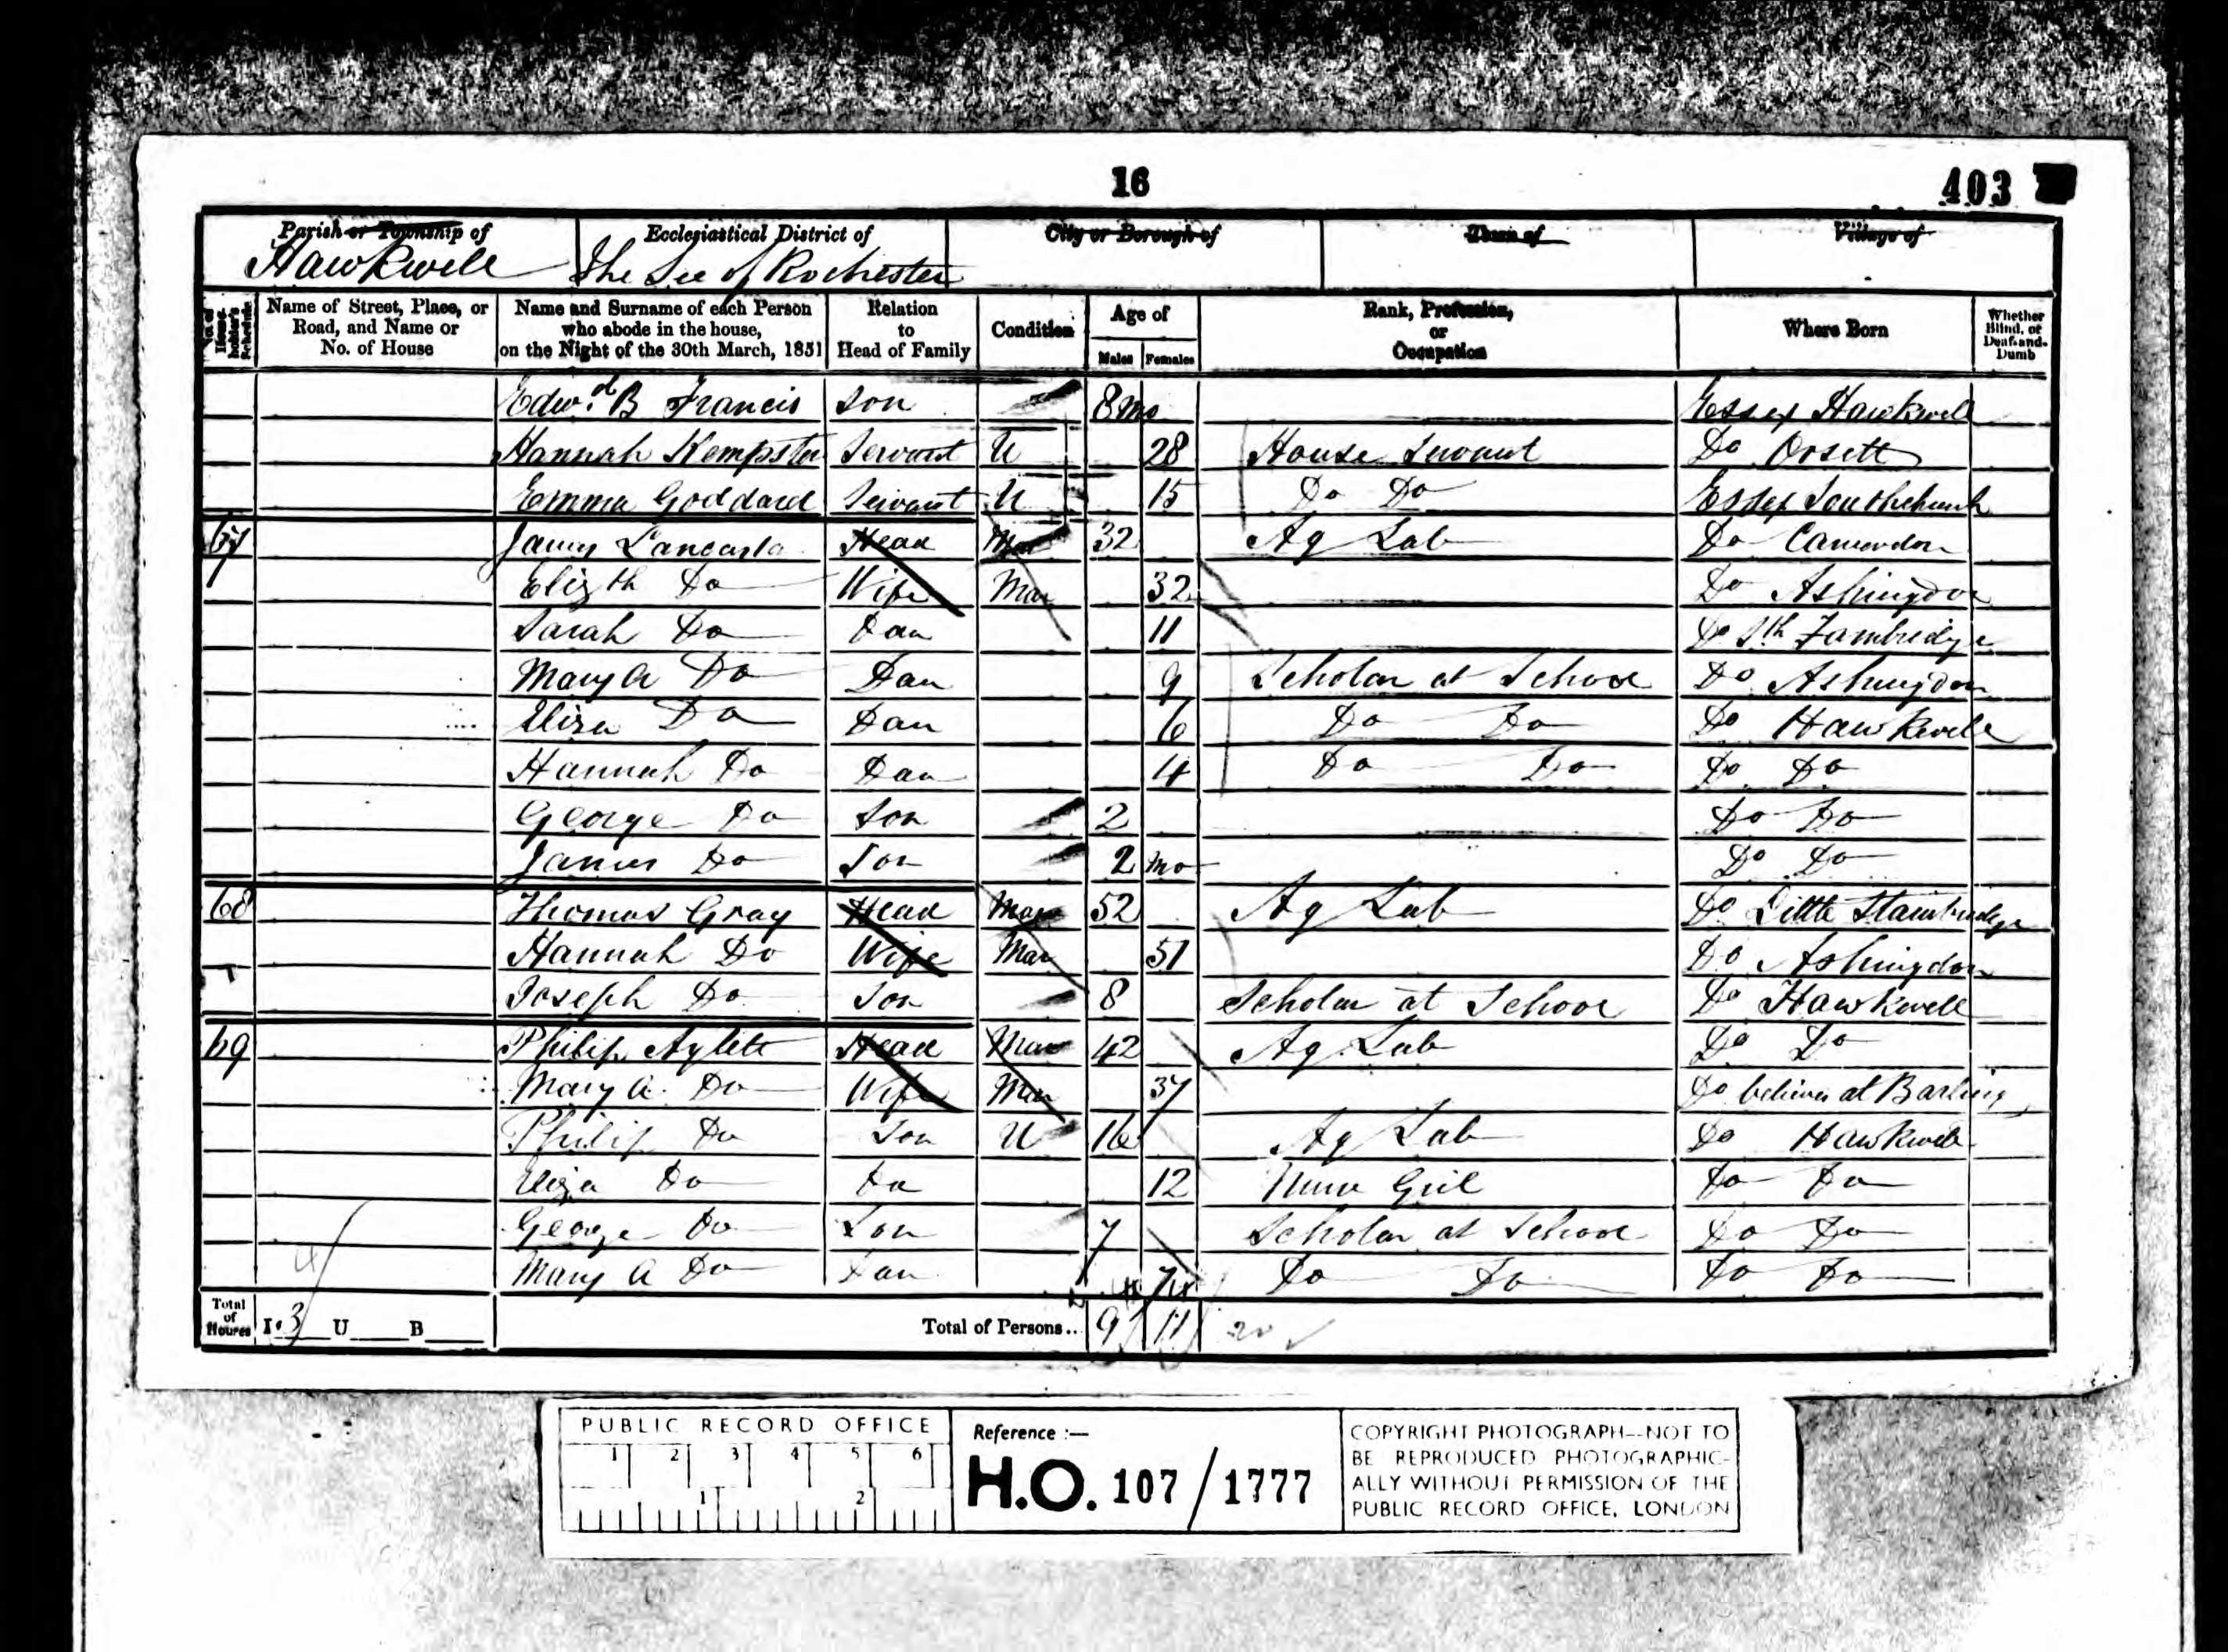 16
403
Parish or Township of
Hawkwell
Ecclesiastical District of
The See of Rochester
City or Borough of
Town of
Village of
No. of House-holder's Schedule
Name of Street, Place, or Road, and Name or No. of House
Name and Surname of each Person who abode in the house, on the Night of the 30th March, 1851
Relation to Head of Family
Condition
Age of
Males Females
Rank, Profession, or Occupation
Where Born
Whether Blind, or Deaf-and-Dumb
Edwd. B Francis Son 8 Mo Essex Hawkwell
Hannah Kempster Servant U 28 House Servant Do Orsett
Emma Goddard Servant U 15 Do Do Essex Southchurch
67 James Head Mar 32 Ag Lab Do
Elizth Do Wife Mar 32 Do Ashingdon
Sarah Do Dau 11 Do Sth Fambridge
Mary A Do Dau 9 Scholar at School Do Ashingdon
Eliza Do Dau 6 Do Do Do Hawkwell
Hannah Do Dau 4 Do Do Do Do
George Do Son 2 Do Do
James Do Son 2 mo Do Do
68 Thomas Gray Head Mar 52 Ag Lab Do Little Stambridge
Hannah Do Wife Mar 51 Do Ashingdon
Joseph Do Son 8 Scholar at School Do Hawkwell
69 Philip Aylett Head Mar 42 Ag Lab Do Do
Mary A Do Wife Mar 37 Do believes at Barling
Philip Do Son U 16 Ag Lab Do Hawkwell
Eliza Do Da 12 Nurse Girl Do Do
George Do Son 7 Scholar at School Do Do
Mary A Do Dau Do Do Do Do
Total of Houses I. 3 U B Total of Persons.. 9 11 20
PUBLIC RECORD OFFICE
1 2 3 4 5 6
1 2
Reference :—
H.O. 107/1777
COPYRIGHT PHOTOGRAPH—NOT TO
BE REPRODUCED PHOTOGRAPHIC-
ALLY WITHOUT PERMISSION OF THE
PUBLIC RECORD OFFICE, LONDON